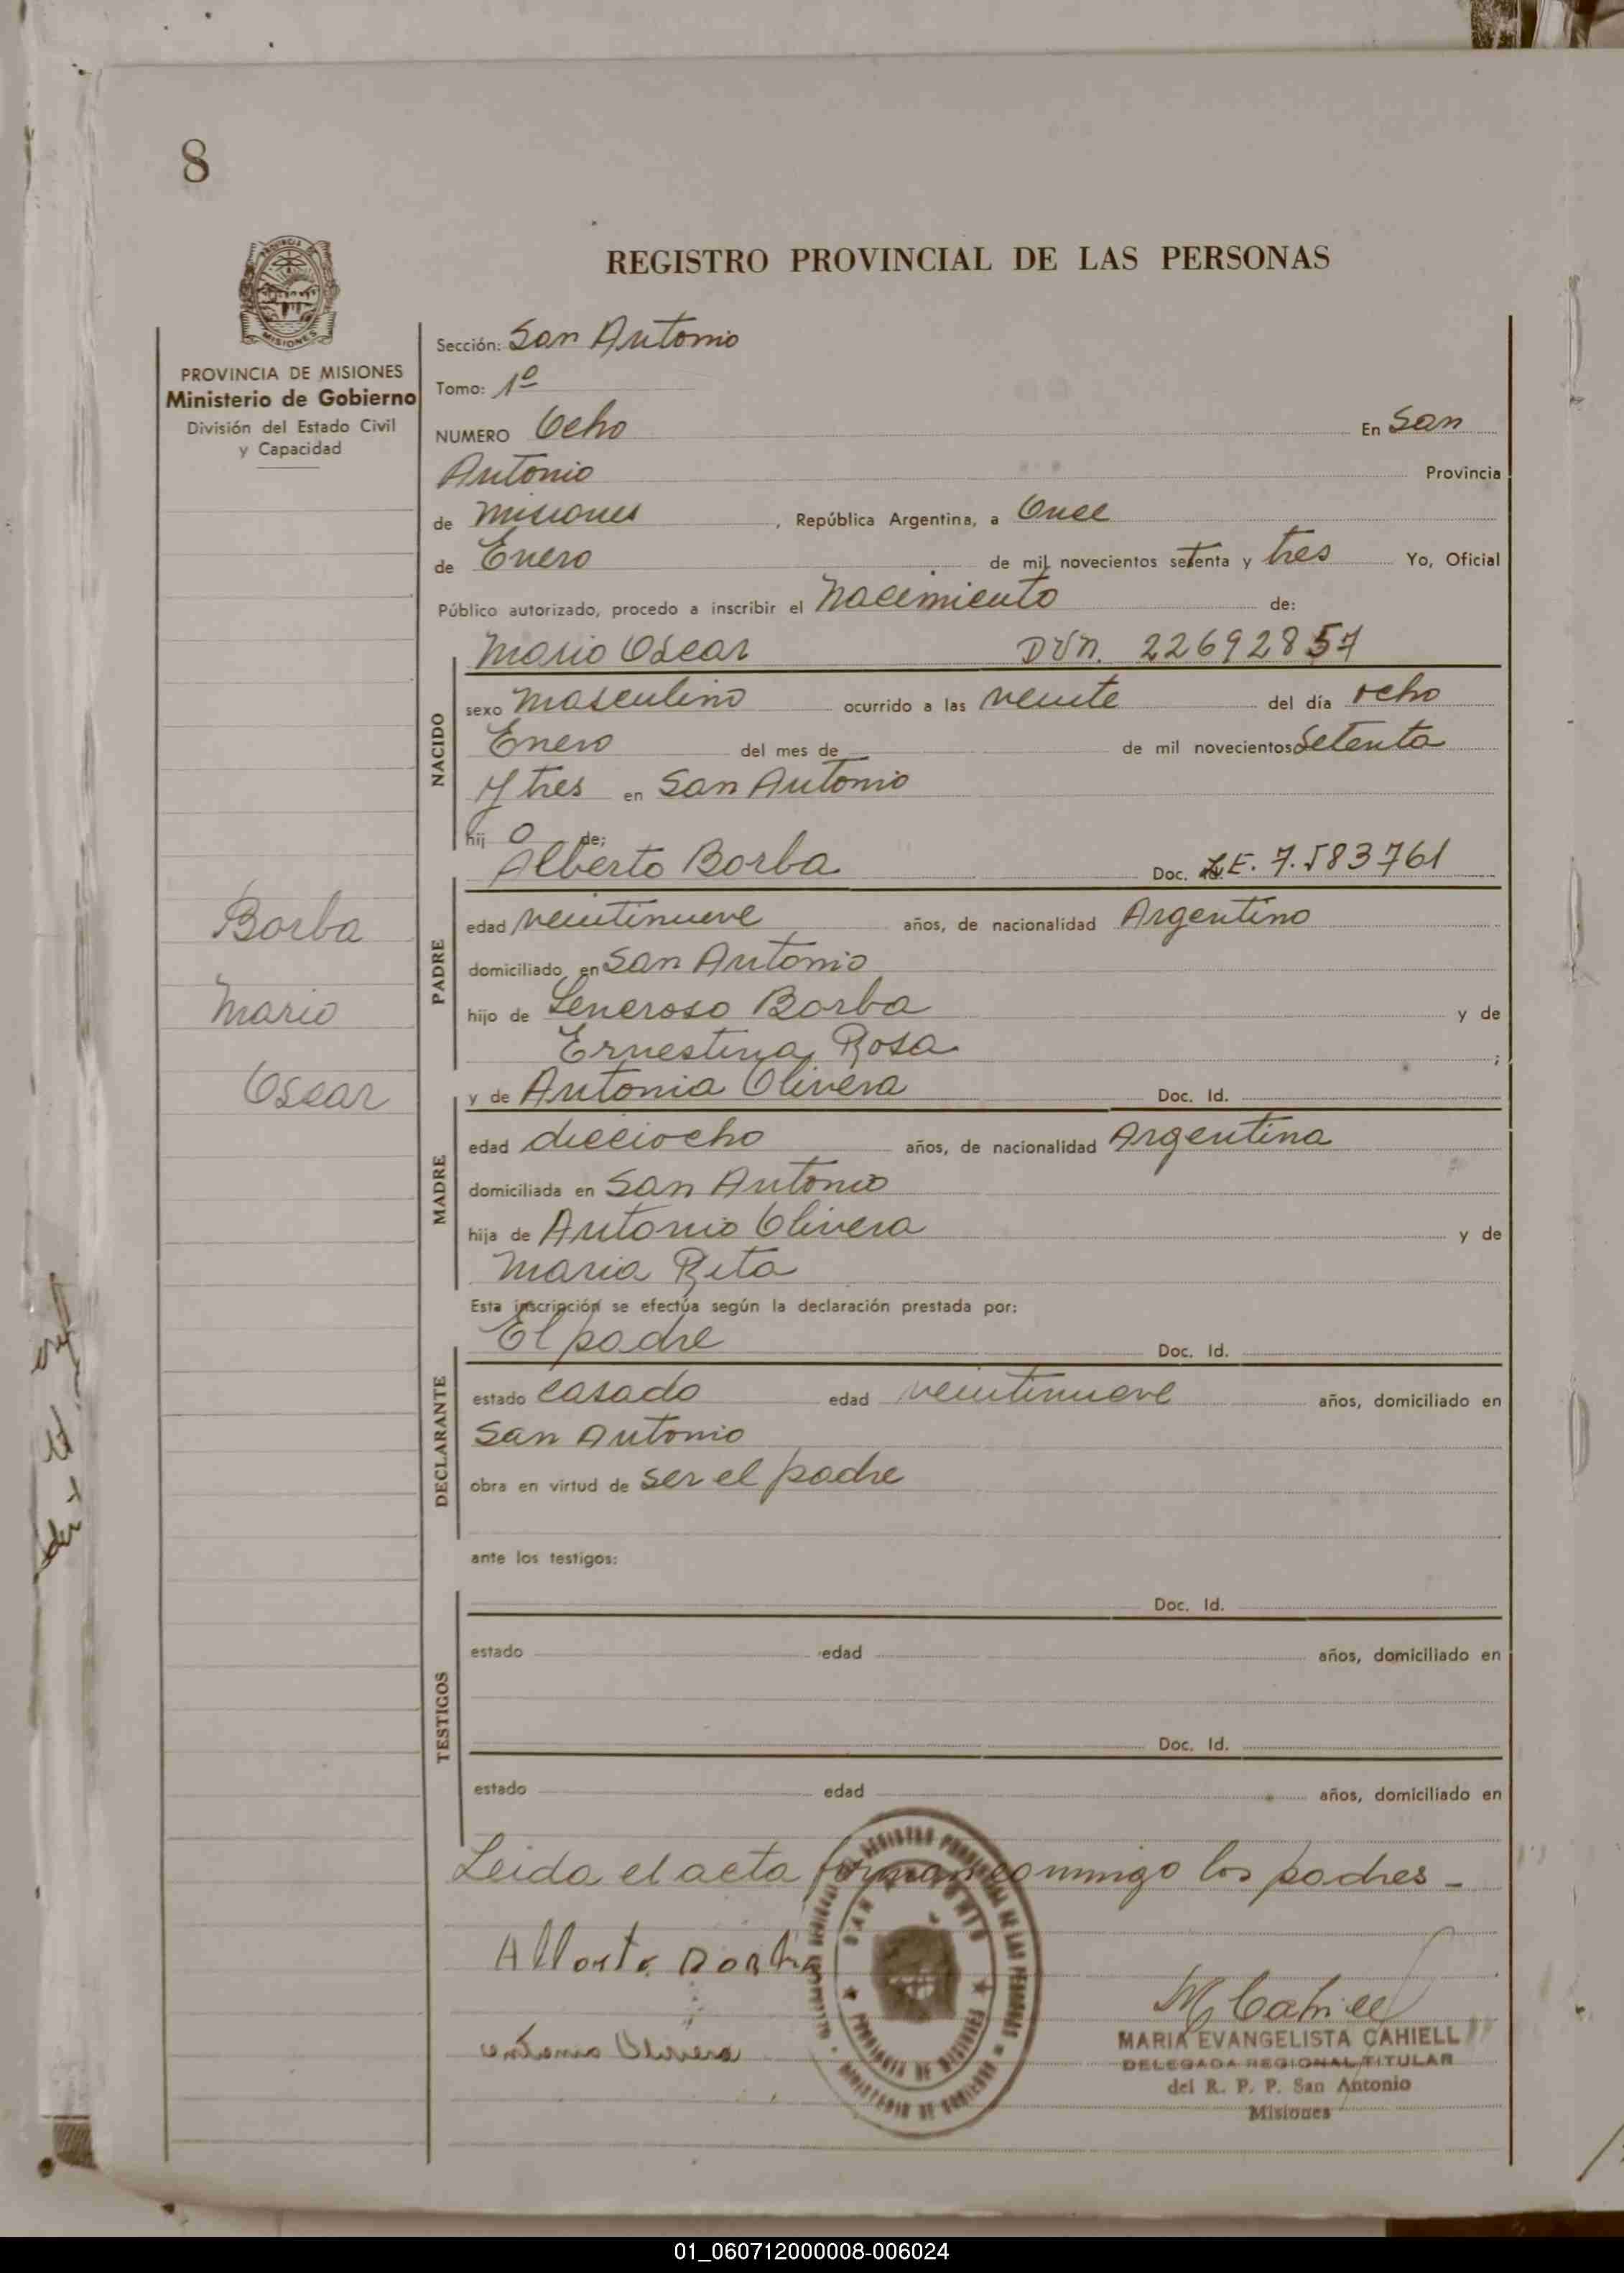 8
REGISTRO PROVINCIAL DE LAS PERSONAS
MISIONES
PROVINCIA DE MISIONES
Ministerio de Gobierno
División del Estado Civil
y Capacidad
Sección: San Antonio
Tomo: 1º
NUMERO Ocho En San
Antonio Provincia
de Misiones, República Argentina, a Once
de Enero de mil novecientos setenta y tres Yo, Oficial
Público autorizado, procedo a inscribir el Nacimiento de:
Mario Oscar
NACIDO
sexo Masculino ocurrido a las veinte del día ocho
Enero del mes de de mil novecientos Setenta
y tres en San Antonio
hij o de:
Alberto Borba Doc. L.E. 7.583761
PADRE
edad veintinueve años, de nacionalidad Argentino
domiciliado en San Antonio
hijo de Generoso Borba y de
Ernestina Rosa ;
Borba
Mario
Oscar
y de Antonia Olivera Doc. Id.
MADRE
edad dieciocho años, de nacionalidad Argentina
domiciliada en San Antonio
hija de Antonio Olivera y de
Maria Rita
Esta inscripción se efectúa según la declaración prestada por:
El padre Doc. Id.
DECLARANTE
estado casado edad veintinueve años, domiciliado en
San Antonio
obra en virtud de ser el padre
ante los testigos:
Doc. Id.
TESTIGOS
estado edad años, domiciliado en
Doc. Id.
estado edad años, domiciliado en
Leida el acta firman conmigo los padres -
M Cahiell
MARIA EVANGELISTA CAHIELL
DELEGADA REGIONAL TITULAR
del R. P. P. San Antonio
Misiones
01_060712000008-006024